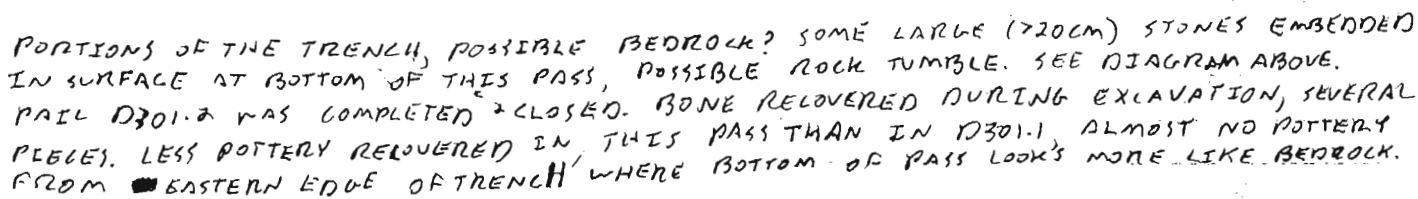 PORTIONS OF THE TRENCH, POSSIBLE BEDROCK? SOME LARGE (>20CM) STONES EMBEDDED
IN SURFACE AT BOTTOM OF THIS PASS, POSSIBLE ROCK TUMBLE. SEE DIAGRAM ABOVE.
PAIL D301.2 WAS COMPLETED & CLOSED. BONE RECOVERED DURING EXCAVATION, SEVERAL
PIECES. LESS POTTERY RECOVERED IN THIS PASS THAN IN D301.1, ALMOST NO POTTERY
FROM EASTERN EDGE OF TRENCH WHERE BOTTOM OF PASS LOOKS MORE LIKE BEDROCK.